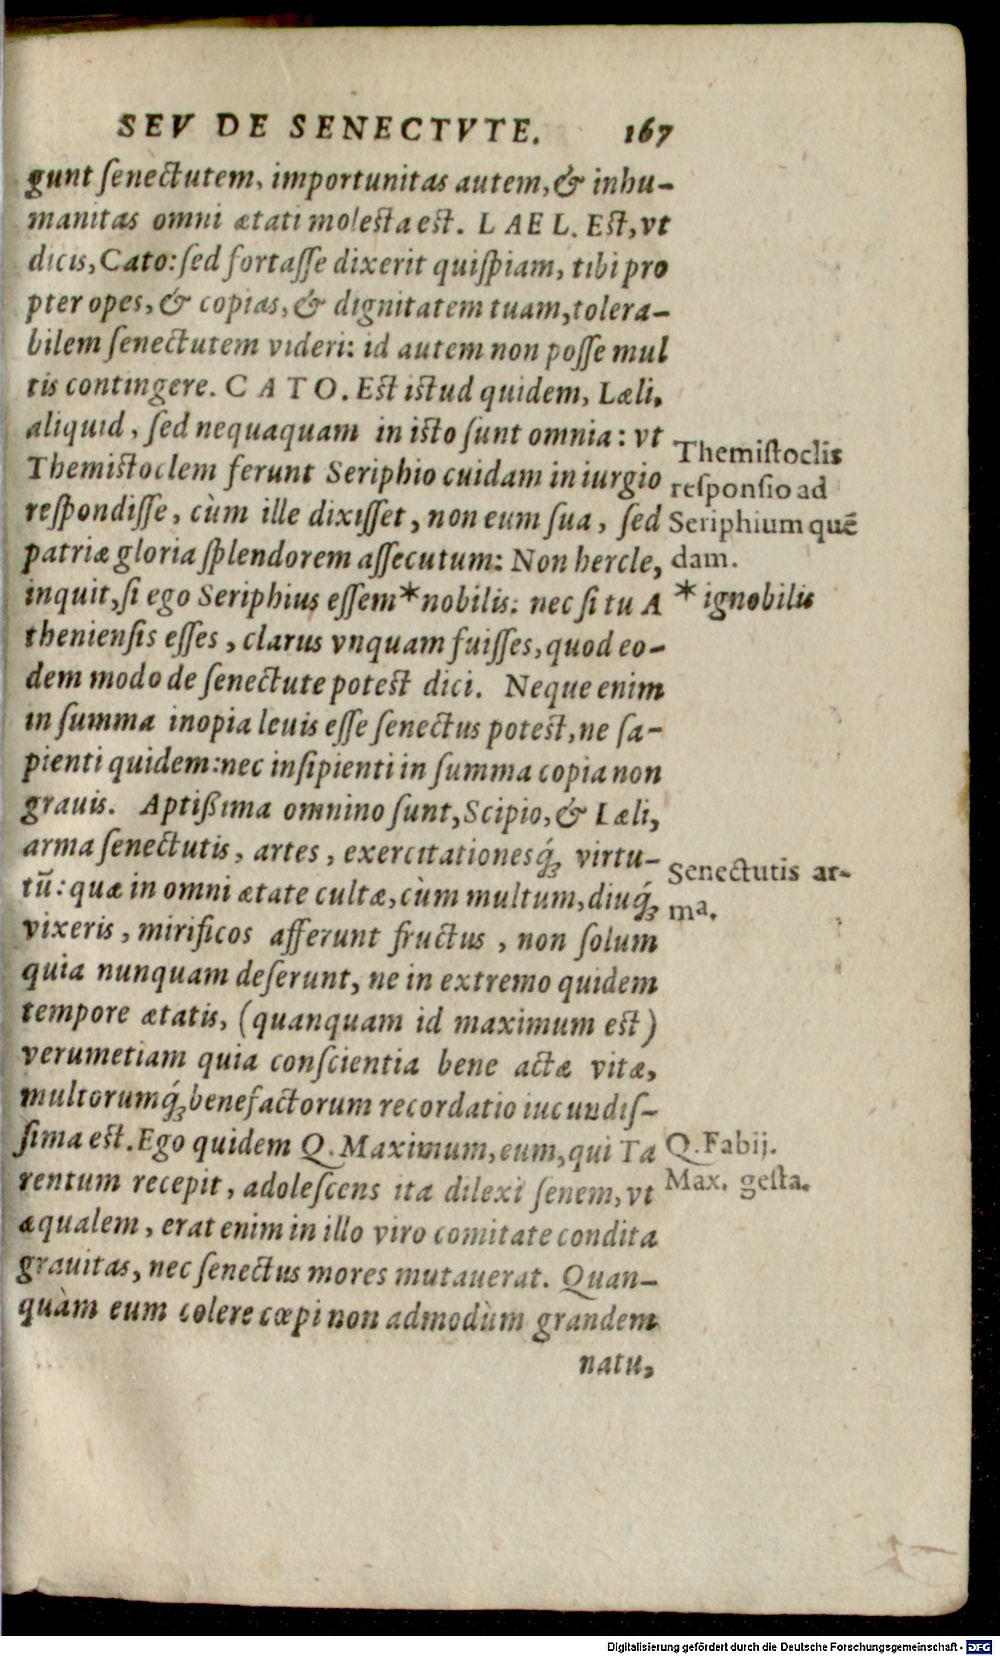 SEV DE SENECTVTE. 167
gunt ſenectutem, importunitas autem, & inhu-
manitas omni ætati moleſta eſt. L AEL. Eſt, vt
dicis, Cato: ſed fortaſſe dixerit quiſpiam, tibi pro
pter opes, & copias, & dignitatem tuam, tolera-
bilem ſenectutem videri: id autem non poſſe mul
tis contingere. C A T O. Eſt iſtud quidem, Læli,
aliquid, ſed nequaquam in iſto ſunt omnia: vt
Themiſtoclem ferunt Seriphio cuidam in iurgio
reſpondiſſe, cùm ille dixiſſet, non eum ſua, ſed
patriæ gloria ſplendorem aſſecutum: Non hercle,
inquit, ſi ego Seriphius eſſem * nobilis: nec ſi tu A
thenienſis eſſes, clarus vnquam fuiſſes, quod eo-
dem modo de ſenectute poteſt dici. Neque enim
in ſumma inopia leuis eſſe ſenectus poteſt, ne ſa-
pienti quidem: nec inſipienti in ſumma copia non
grauis. Aptißima omnino ſunt, Scipio, & Læli,
arma ſenectutis, artes, exercitationesq́; virtu-
tũ: quæ in omni ætate cultæ, cùm multum, diuq́;
vixeris, mirificos afferunt fructus, non ſolum
quia nunquam deſerunt, ne in extremo quidem
tempore ætatis, (quanquam id maximum eſt)
verumetiam quia conſcientia bene actæ vitæ,
multorumq́; benefactorum recordatio iucundiſ-
ſima eſt. Ego quidem Q. Maximum, eum, qui Ta
rentum recepit, adoleſcens ita dilexi ſenem, vt
æqualem, erat enim in illo viro comitate condita
grauitas, nec ſenectus mores mutauerat. Quan-
quàm eum colere cœpi non admodùm grandem
natu,
Themiſtoclis
reſponſio ad
Seriphium quẽ
dam.
* ignobilis
Senectutis ar-
ma.
Q. Fabij.
Max. geſta.
Digitalisierung gefördert durch die Deutsche Forschungsgemeinschaft - DFG